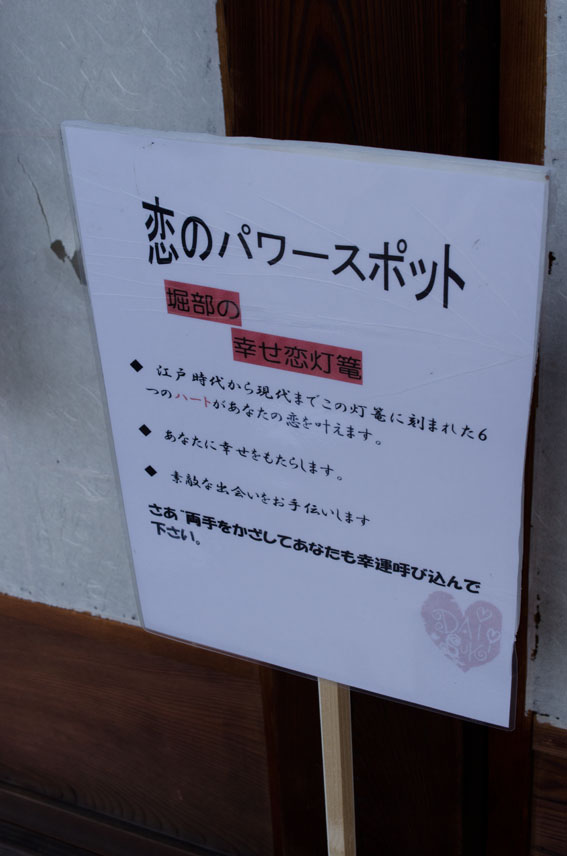 恋のパワースポット
堀部の
幸せ恋灯篭
◆ 江戸時代から現代までこの灯篭に刻まれた6
つのハートがあなたの恋を叶えます。
◆ あなたに幸せをもたらします。
◆ 素敵な出会いをお手伝いします
さあ"両手をかざしてあなたも幸運呼び込んで
下さい。